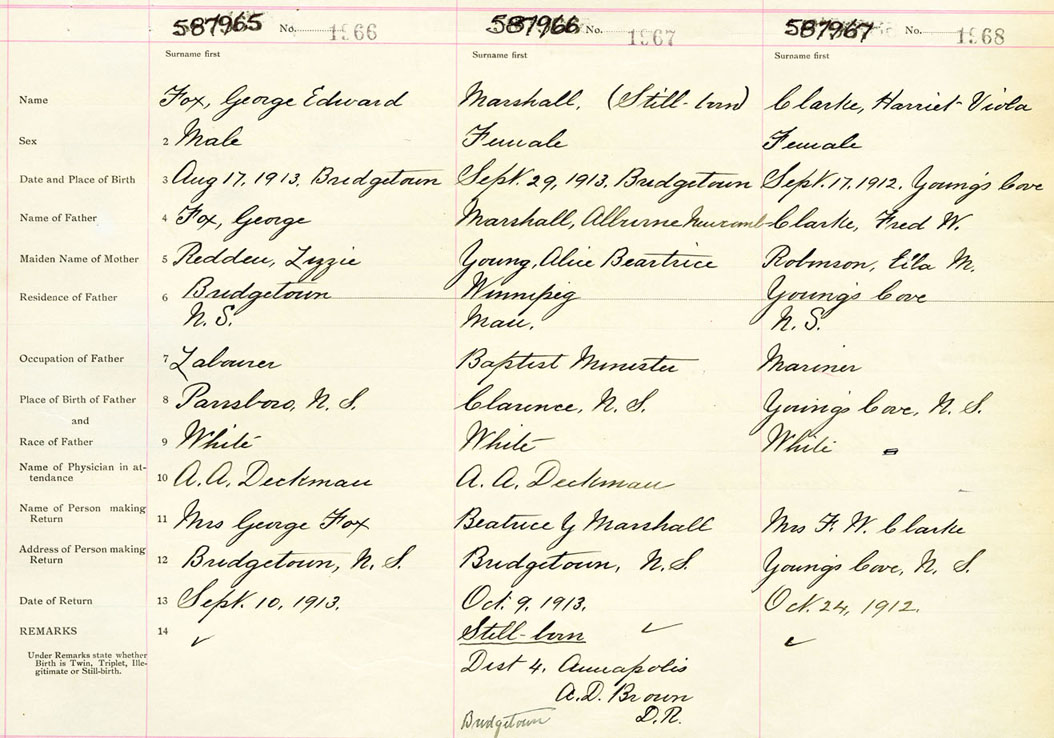 587965 No. 1966 587966 No. 1967 587967 No. 1968
Surname first Surname first Surname first
Name Fox, George Edward Marshall, (Still-born) Clarke, Harriet Viola
Sex 2 Male Female Female
Date and Place of Birth 3 Aug 17, 1913, Bridgetown Sept. 29, 1913, Bridgetown Sept. 17, 1912, Young's Cove
Name of Father 4 Fox, George Marshall, Alburne Newcomb Clarke, Fred W.
Maiden Name of Mother 5 Redden, Lizzie Young, Alice Beartrice Robinson, Eila M.
Residence of Father 6 Bridgetown Winnipeg Young's Cove
N. S. Man. N. S.
Occupation of Father 7 Labourer Baptist Minister Mariner
Place of Birth of Father 8 Parrsboro, N. S. Clarence, N. S. Young's Cove, N. S.
and
Race of Father 9 White White White
Name of Physician in at-
tendance 10 A. A. Deckman A. A. Deckman
Name of Person making
Return 11 Mrs George Fox Beatrice Y Marshall Mrs F. W. Clarke
Address of Person making
Return 12 Bridgetown, N. S. Bridgetown, N. S. Young's Cove, N. S.
Date of Return 13 Sept. 10, 1913. Oct. 9, 1913. Oct. 24, 1912.
REMARKS 14 Still-born
Under Remarks state whether
Birth is Twin, Triplet, Ille-
gitimate or Still-birth.
Dist 4, Annapolis
A. D. Brown
D. R.
Bridgetown